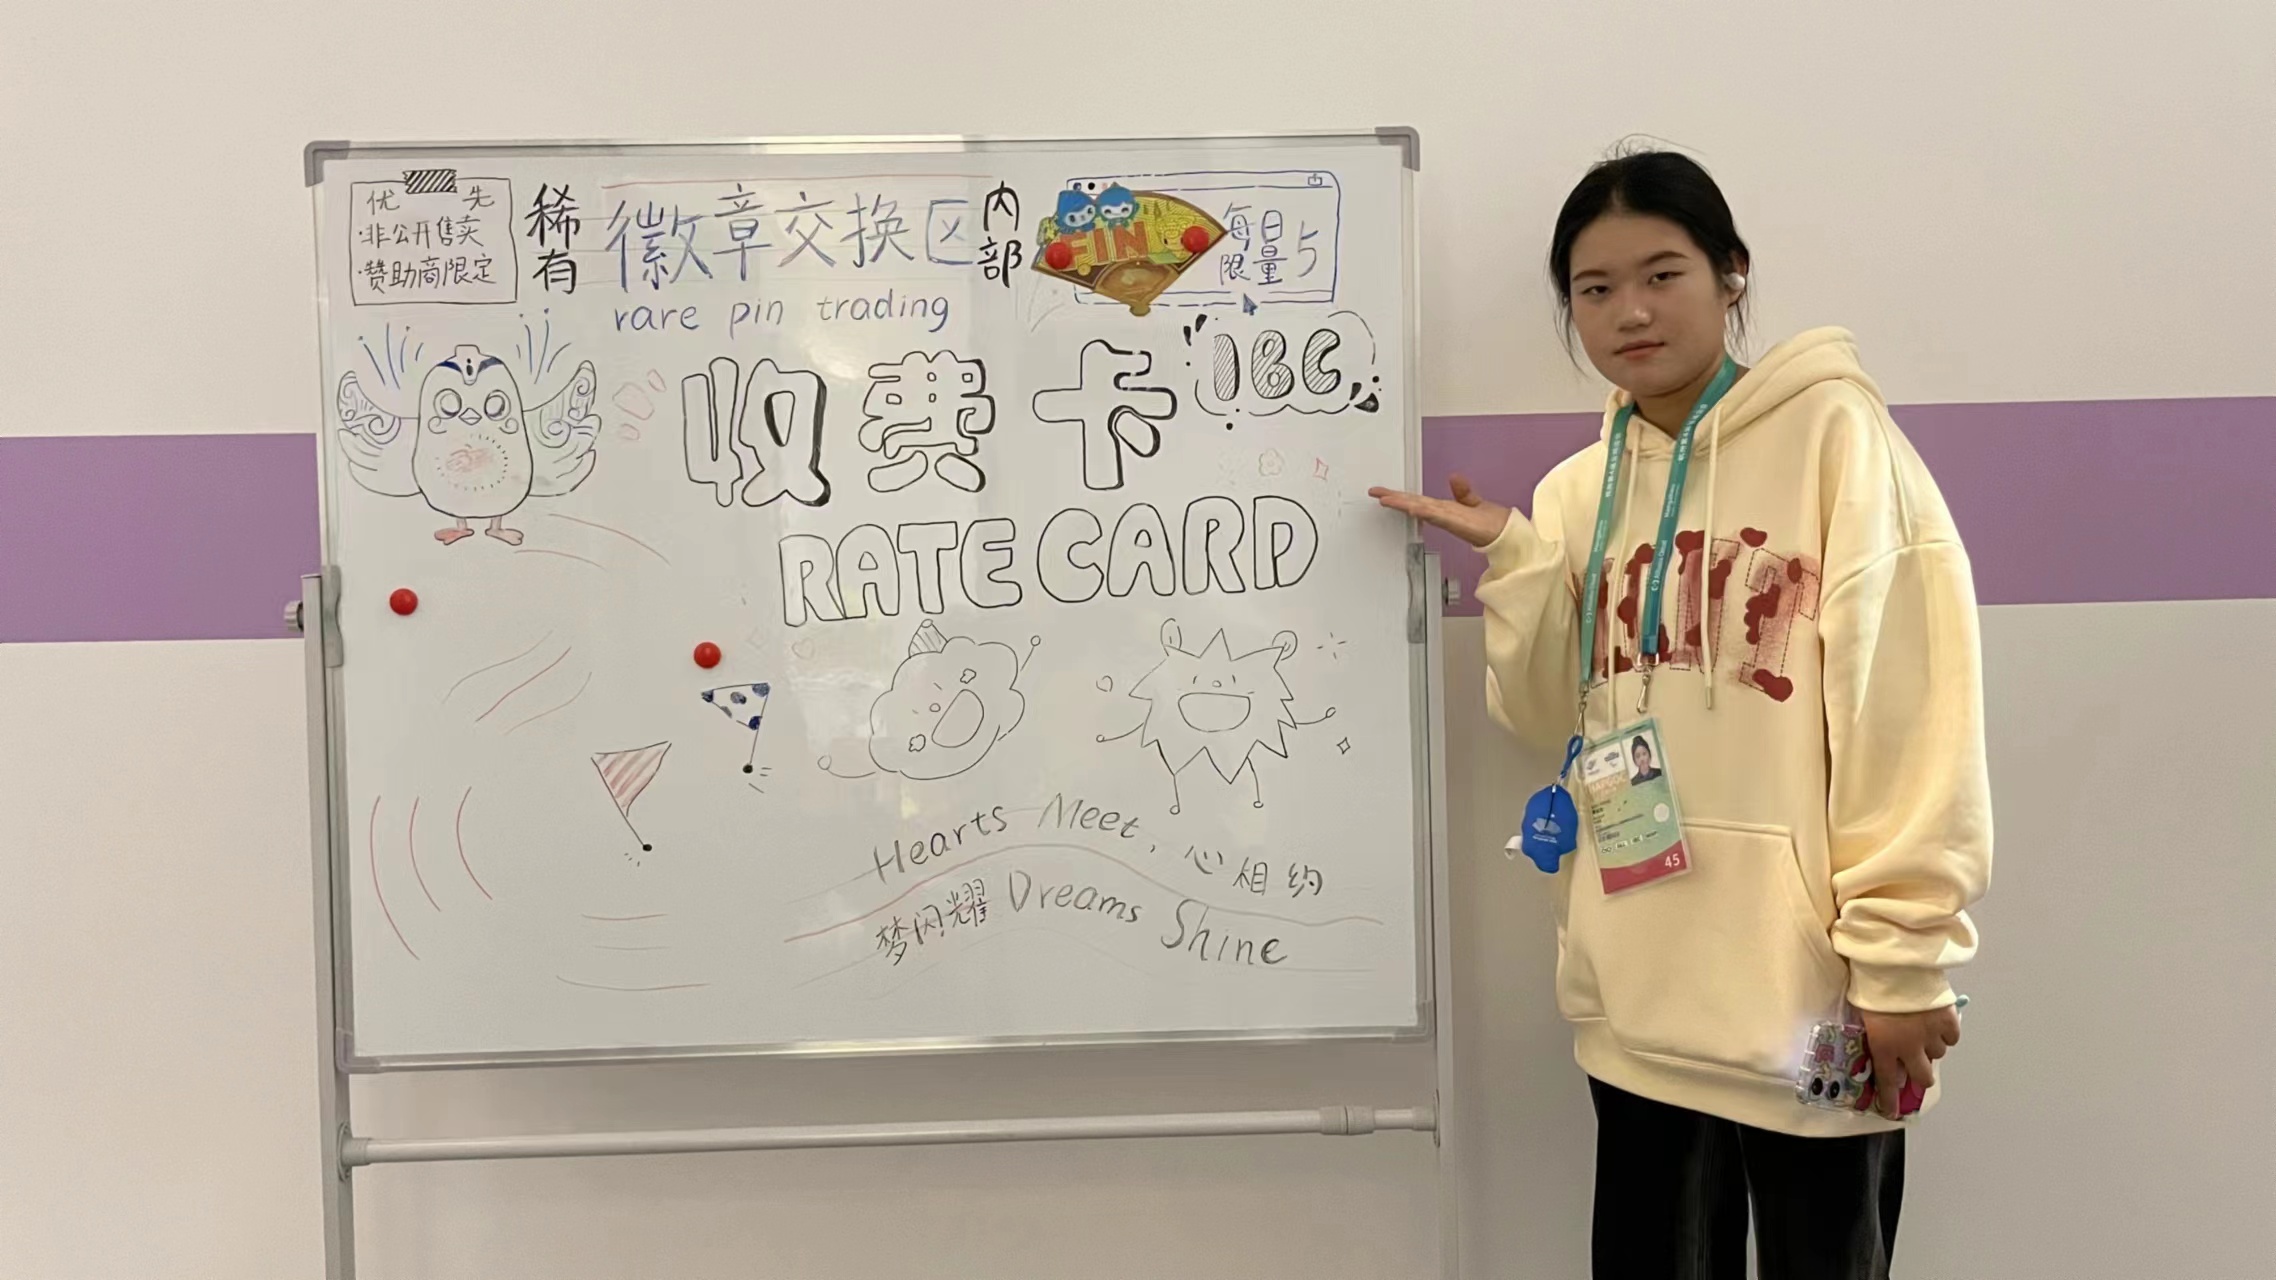 优 先
·非公开售卖
·赞助商限定
稀有
徽章交换区
内部
rare pin trading
PIN
每日
限量
5
收费卡
IBC
RATE CARD
Hearts Meet, 心相约
梦闪耀 Dreams Shine
Alibaba Cloud
HAPGOC
45